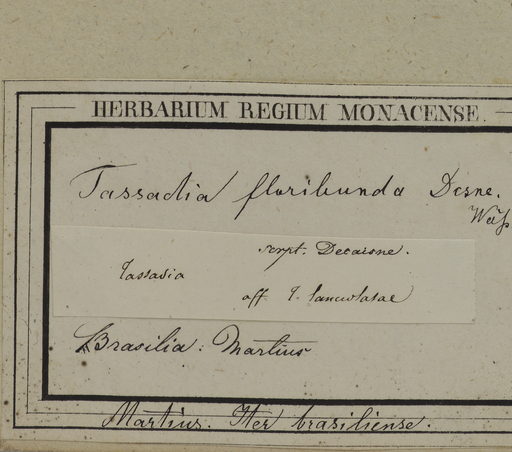 HERBARIUM REGIUM MONACENSE.
Tassadia floribunda Dcsne.
scrpt. Decaisne.
Tassadia
aff T. lanceolatae
Brasilia: Martius
Martius. Iter brasiliense.